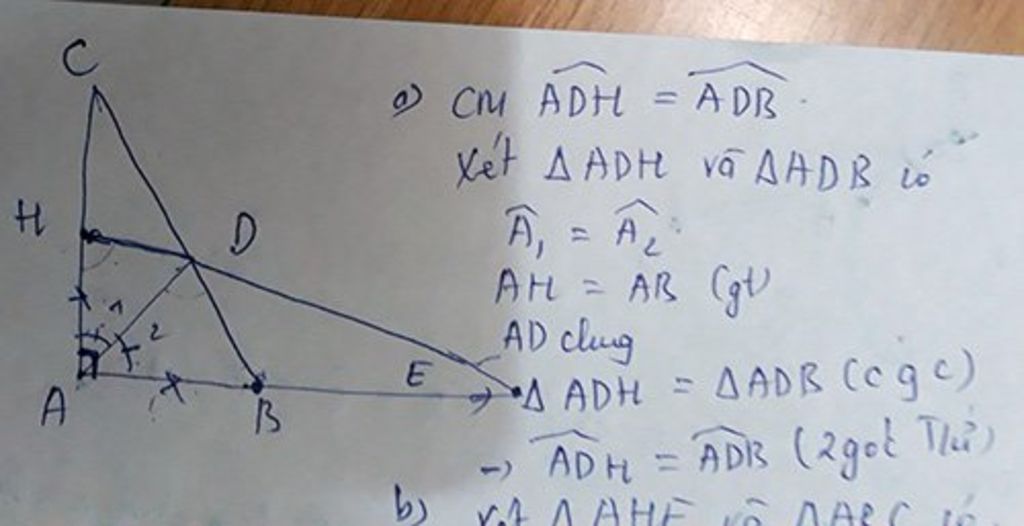 C
H
D
1
2
A
B
E
a) CM ADH = ADB.
Xét Δ ADH và Δ ADB có
A₁ = A₂
AH = AB (gt)
AD chung
→ Δ ADH = Δ ADB (c g c)
→ ADH = ADB (2góc Tứ)
b) Xét Δ AHE và Δ ABC có